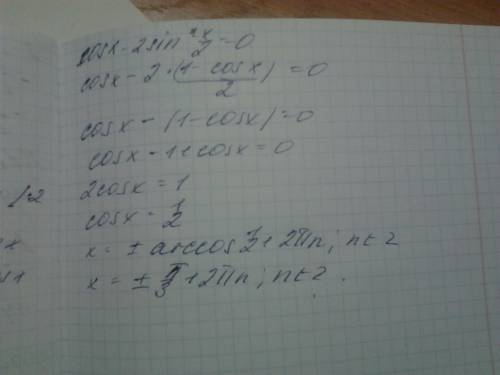 cosx - 2sin²x/2 = 0
cosx - 2·(1 - cosx)/2 = 0
cosx - (1 - cosx) = 0
cosx - 1 + cosx = 0
2cosx = 1
cosx = 1/2
x = ± arccos 1/2 + 2πn; n∈Z
x = ± π/3 + 2πn; n∈Z.